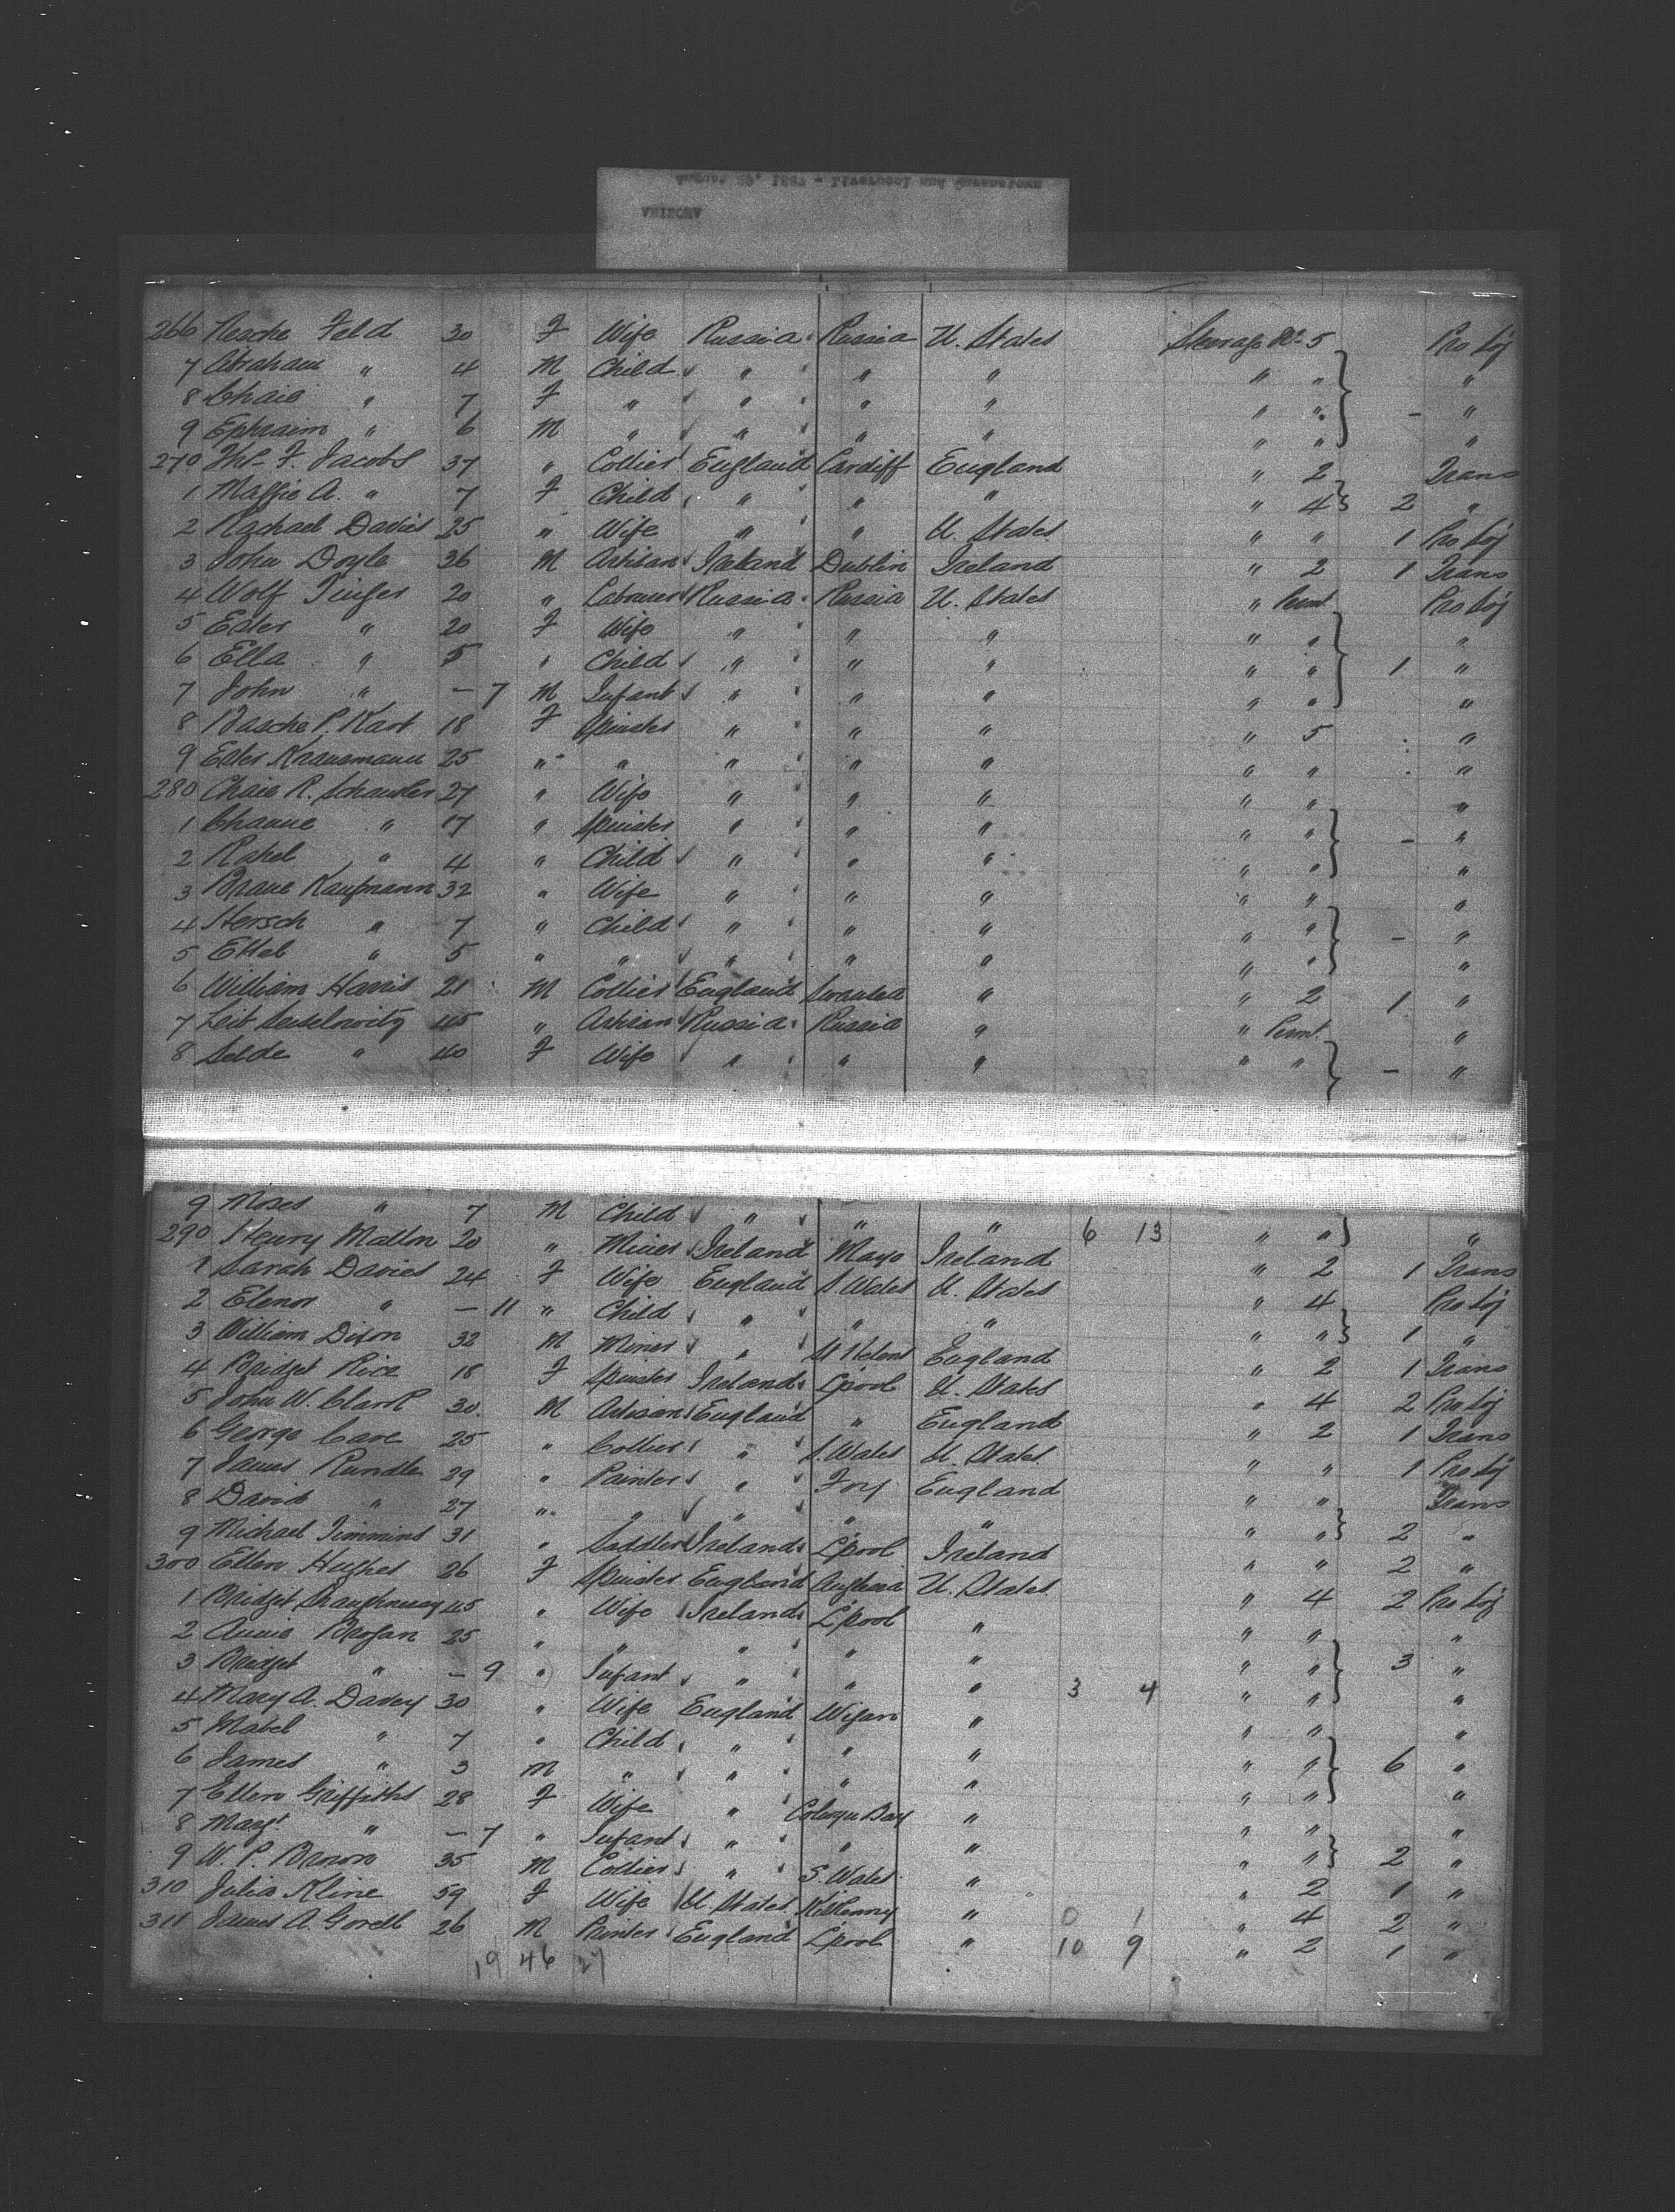 August 29, 1887 - Liverpool and Queenstown
266 Resche Feld 30 F Wife Russia Russia U. States Steerage No 5 Pro Soj
7 Abraham " 4 M Child " " " " " "
8 Chaie " 7 F " " " " " " - "
9 Ephraim " 6 M " " " " " " "
270 Ths. F. Jacobs 37 " Collier England Cardiff England " 2 Trans
1 Maggie A. " 7 F Child " " " " 4 2 "
2 Rachael Davies 25 " Wife " " U. States " " 1 Pro Soj
3 John Doyle 36 M Artisan Ireland Dublin Ireland " 2 1 Trans
4 Wolf 20 " Labourer Russia Russia U. States " Pro Soj
5 Ester " 20 F Wife " " " " " "
6 Ella " 5 " Child " " " " " 1 "
7 John " - 7 M Infant " " " " " "
8 Basche P. Kart 18 F Spinster " " " " 5 "
9 Ester Krausmann 25 " " " " " " " "
280 Chaie R. 27 " Wife " " " " " "
1 " 17 " Spinster " " " " " - "
2 Rahel " 4 " Child " " " " " "
3 Braue Kaufmann 32 " Wife " " " " " "
4 Hersch " 7 " Child " " " " " - "
5 Ettel " 5 " " " " " " " "
6 William Harris 21 M Collier England Swansea " " 2 1 "
7 Leib 45 " Artisan Russia Russia " " "
8 Selde " 40 F Wife " " " " " - "
9 Moses " 7 M Child " " " 6 13 " " "
290 Henry Mallon 20 " Miner Ireland Mayo Ireland " 2 1 Trans
1 Sarah Davies 24 F Wife England S. Wales U. States " 4 Pro Soj
2 Elenor " - 11 " Child " " " " " 1 "
3 William Dixon 32 M Miner " St Helens England " 2 1 Trans
4 Bridget Rice 18 F Spinster Ireland L'pool U. States " 4 2 Pro Soj
5 John W. Clark 30 M Artisan England " England " 2 1 Trans
6 George Cave 25 " Collier " S. Wales U. States " " 1 Pro Soj
7 James Rundle 29 " Painter " England " " Trans
8 David " 27 " " " " " " " 2 "
9 Michael Timmins 31 " Saddler Ireland L'pool Ireland " " 2 "
300 Ellen Hughes 26 F Spinster England U. States " 4 2 Pro Soj
1 Bridget Shaughnessy 45 " Wife Ireland L'pool " " " "
2 Annie Brogan 25 " " " " " " " 3 "
3 Bridget " - 9 " Infant " " " 3 4 " " "
4 Mary A. Davey 30 " Wife England Wigan " " " "
5 Mabel " 7 " Child " " " " " 6 "
6 James " 3 M " " " " " " "
7 Ellen Griffiths 28 F Wife " Colwyn Bay " " " "
8 Margt. " - 7 " Infant " " " " " 2 "
9 W. P. Brown 35 M Collier " S. Wales " " 2 1 "
310 Julia Kline 59 F Wife U. States Kilkenny " 0 1 " 4 2 "
311 James A. Gorell 26 M Printer England L'pool " 10 9 " 2 1 "
19 46 27